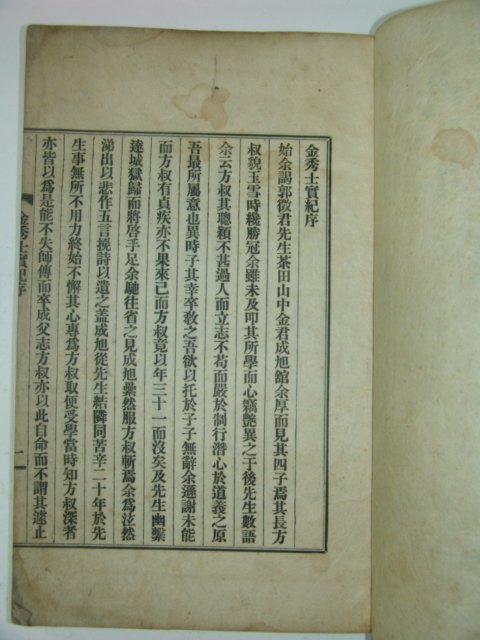 金秀士實紀序
始余謁郭徵君先生茶田山中金君成旭舘余厚而見其四子焉其長方
叔貌玉雪時纔勝冠余雖未及叩其所學而心竊艶異之于後先生數語
余云方叔其聰穎不甚過人而立志不苟而嚴於制行潛心於道義之原
吾最所屬意也異時子其幸卒敎之吾欲以托於子子無辭余遜謝未能
而方叔有貞疾亦不果來已而方叔竟以年三十一而沒矣及先生幽縶
達城獄歸而將啓手足余馳往省之見成旭纍然服方叔斬焉余爲泫然
涕出以悲作五言挽詩以遺之盖成旭從先生結隣同苦辛二十年於先
生事無所不用力終始不懈其心專爲方叔取便受學當時知方叔深者
亦皆以爲是能不失師傳而卒成父志方叔亦以此自命而不謂其遽止
金秀士實紀序
一